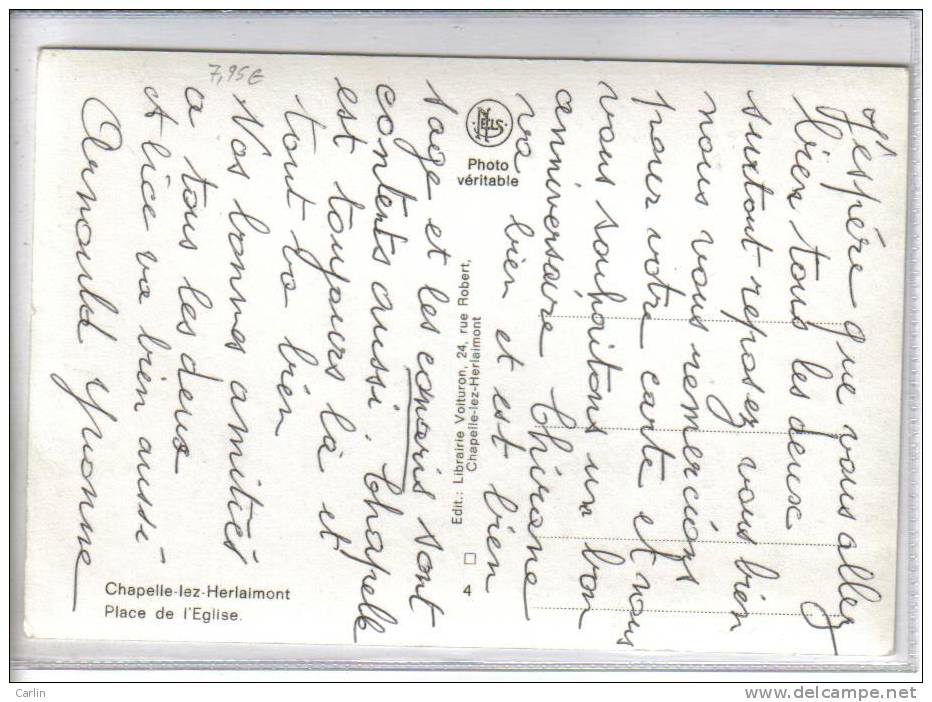 J'espére que vous allez
bien tous les deux
surtout reposez vous bien
nous vous remercions
pour votre carte et nous
vous souhaitons un bon
anniversaire
va bien et est bien
sage et les canaris sont
contents aussi. Chapelle
est toujours là et
tout va bien
Vos bonnes amitiés
a tous les deux
Alice va bien aussi
Arnould Yvonne
7,95€
Photo
véritable
Edit.: Librairie Voituron, 24, rue Robert,
Chapelle-lez-Herlaimont
4
Chapelle-lez-Herlaimont
Place de l'Eglise.
Carlin
www.delcampe.net